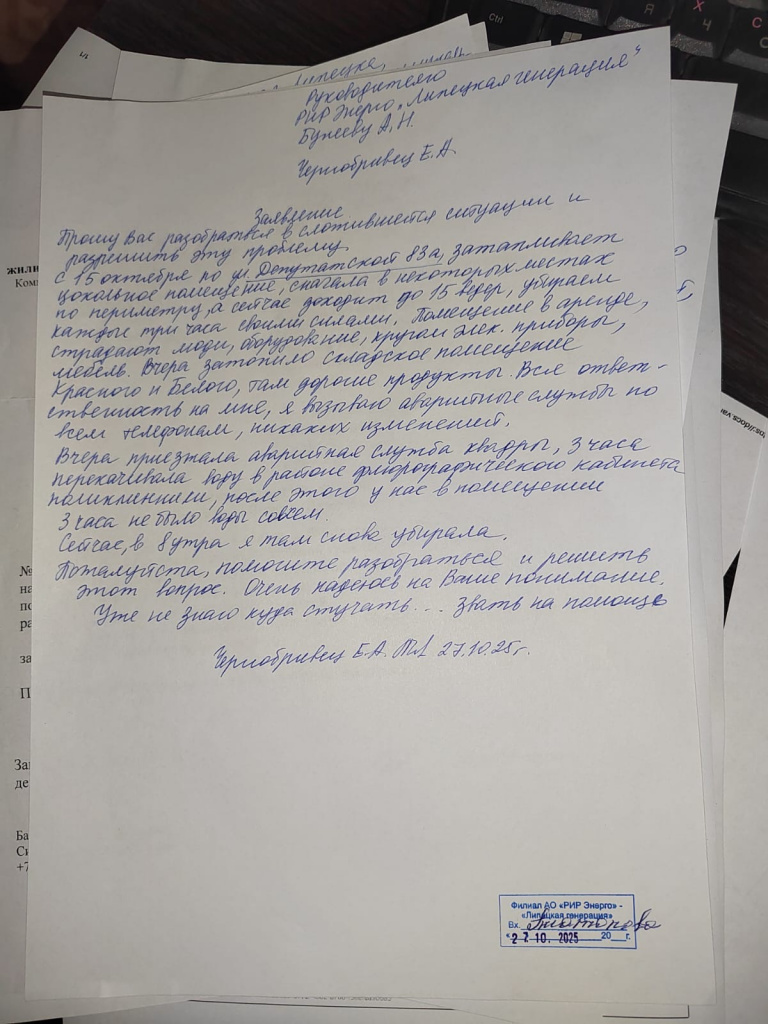 Руководителю
РИР Энерго „Липецкая генерация"
Бунееву А.Н.
Чернобривец Е.А.
Заявление
Прошу Вас разобраться в сложившейся ситуации и
разрешить эту проблему.
С 15 октября по ул. Депутатской 83а, затапливает
цокольное помещение, сначала в некоторых местах
по периметру, а сейчас доходит до 15 ведер, убираем
каждые три часа своими силами. Помещение в аренде,
страдают люди, оборудование, кругом элек. приборы,
мебель. Вчера затопило складское помещение
Красного и Белого, там дорогие продукты. Вся ответ-
ственность на мне, я вызываю аварийные службы по
всем телефонам, никаких изменений.
Вчера приезжала аварийная служба квадры, 3 часа
перекачивала воду в районе флюрографического кабинета
поликлиники, после этого у нас в помещении
3 часа не было воды совсем.
Сейчас, в 8 утра я там снова убирала.
Пожалуйста, помогите разобраться и решить
этот вопрос. Очень надеюсь на Ваше понимание.
Уже не знаю куда стучать... звать на помощь
Чернобривец Е.А. 27.10.25г.
Филиал АО «РИР Энерго» -
«Липецкая генерация»
Вх.
« 27.10.2025 20 г.